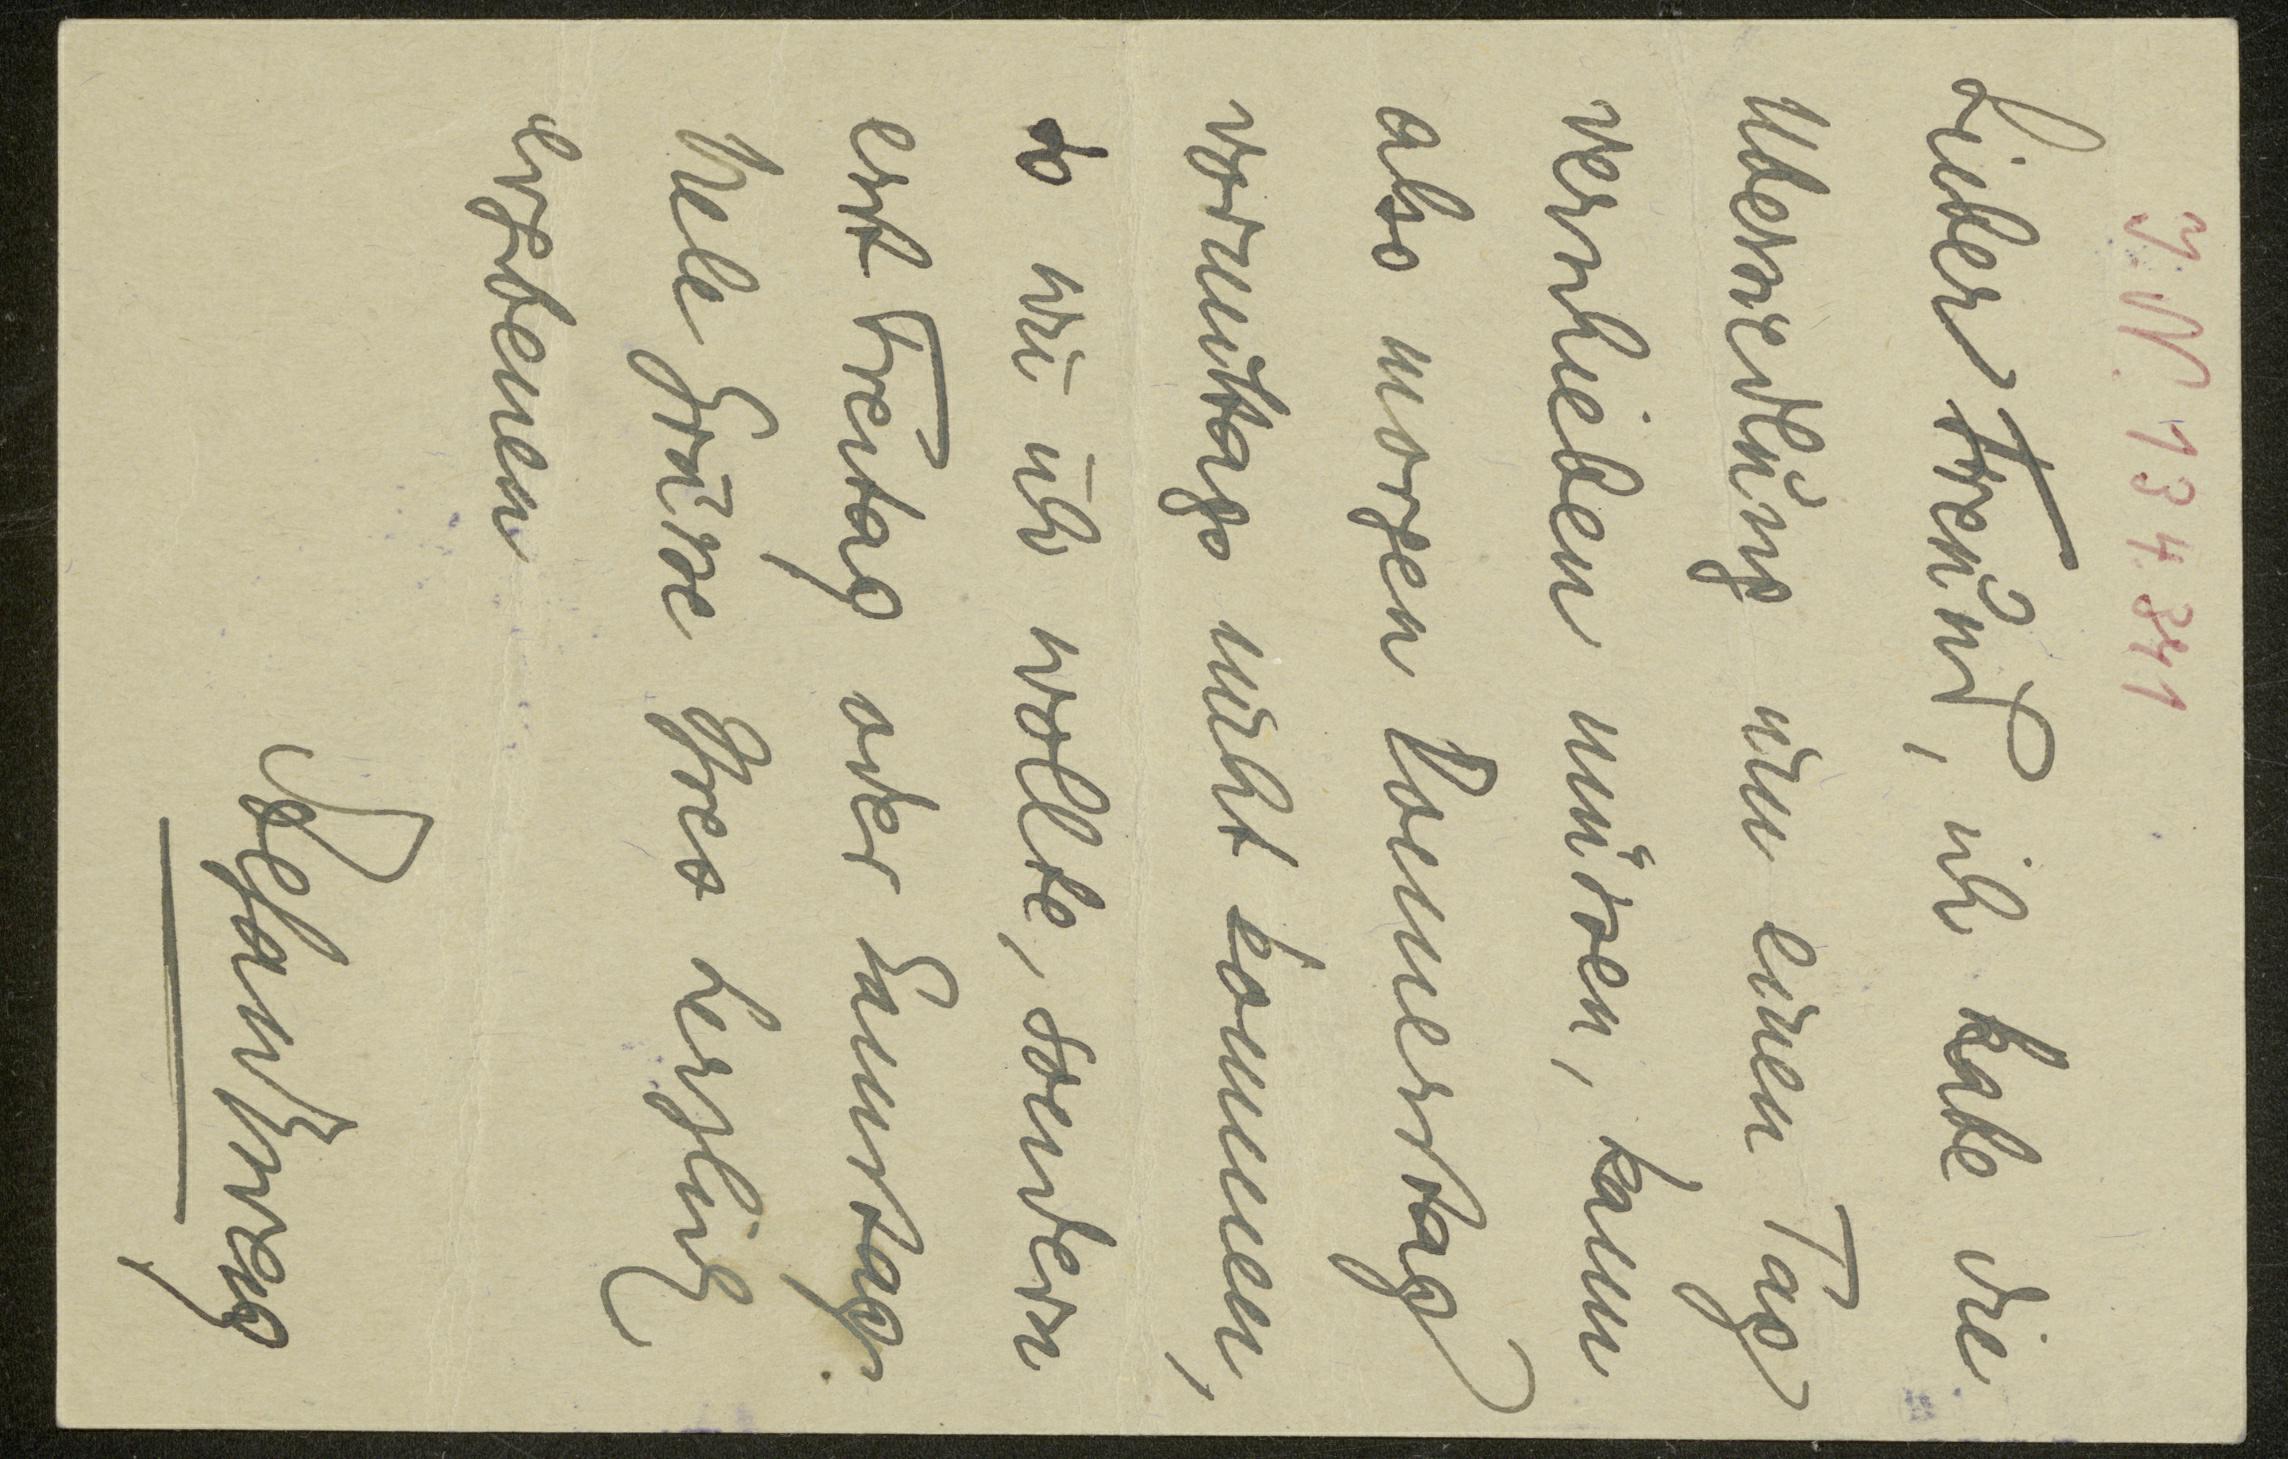 J. N. 134341
Lieber Freund, ich habe die
Übersiedlung um einen Tag
verschieben müssen, kann
also morgen Donnerstag
vormittags nicht kommen,
so wie ich wollte, sondern
erst Freitag oder Samstag.
Viele Grüsse Ihres herzlich
ergebenen
Stefan Zweig